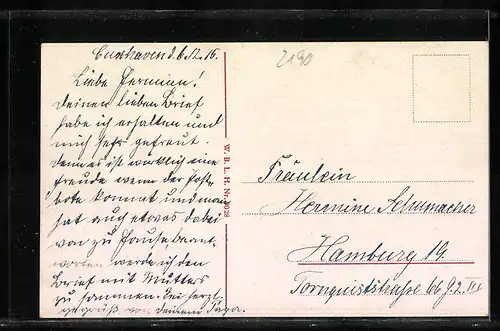 Cuxhaven d. 6. 12. 16.
Liebe Hermine!
Deinen lieben Brief
habe ich erhalten und
mich sehr gefreut.
denn es ist wirklich eine
freude wenn der Post-
bote kommt und man
hat auch etwas dabei
von zu Hause, beant-
worten werde ich den
Brief mit Mutters
zusammen. Sei herzl.
gegrüß von deinem
2190
W. B. L. H. Nr.
Fräulein
Hermine Schumacher
Hamburg 19.
Tornquiststraße 66 J. 2. III